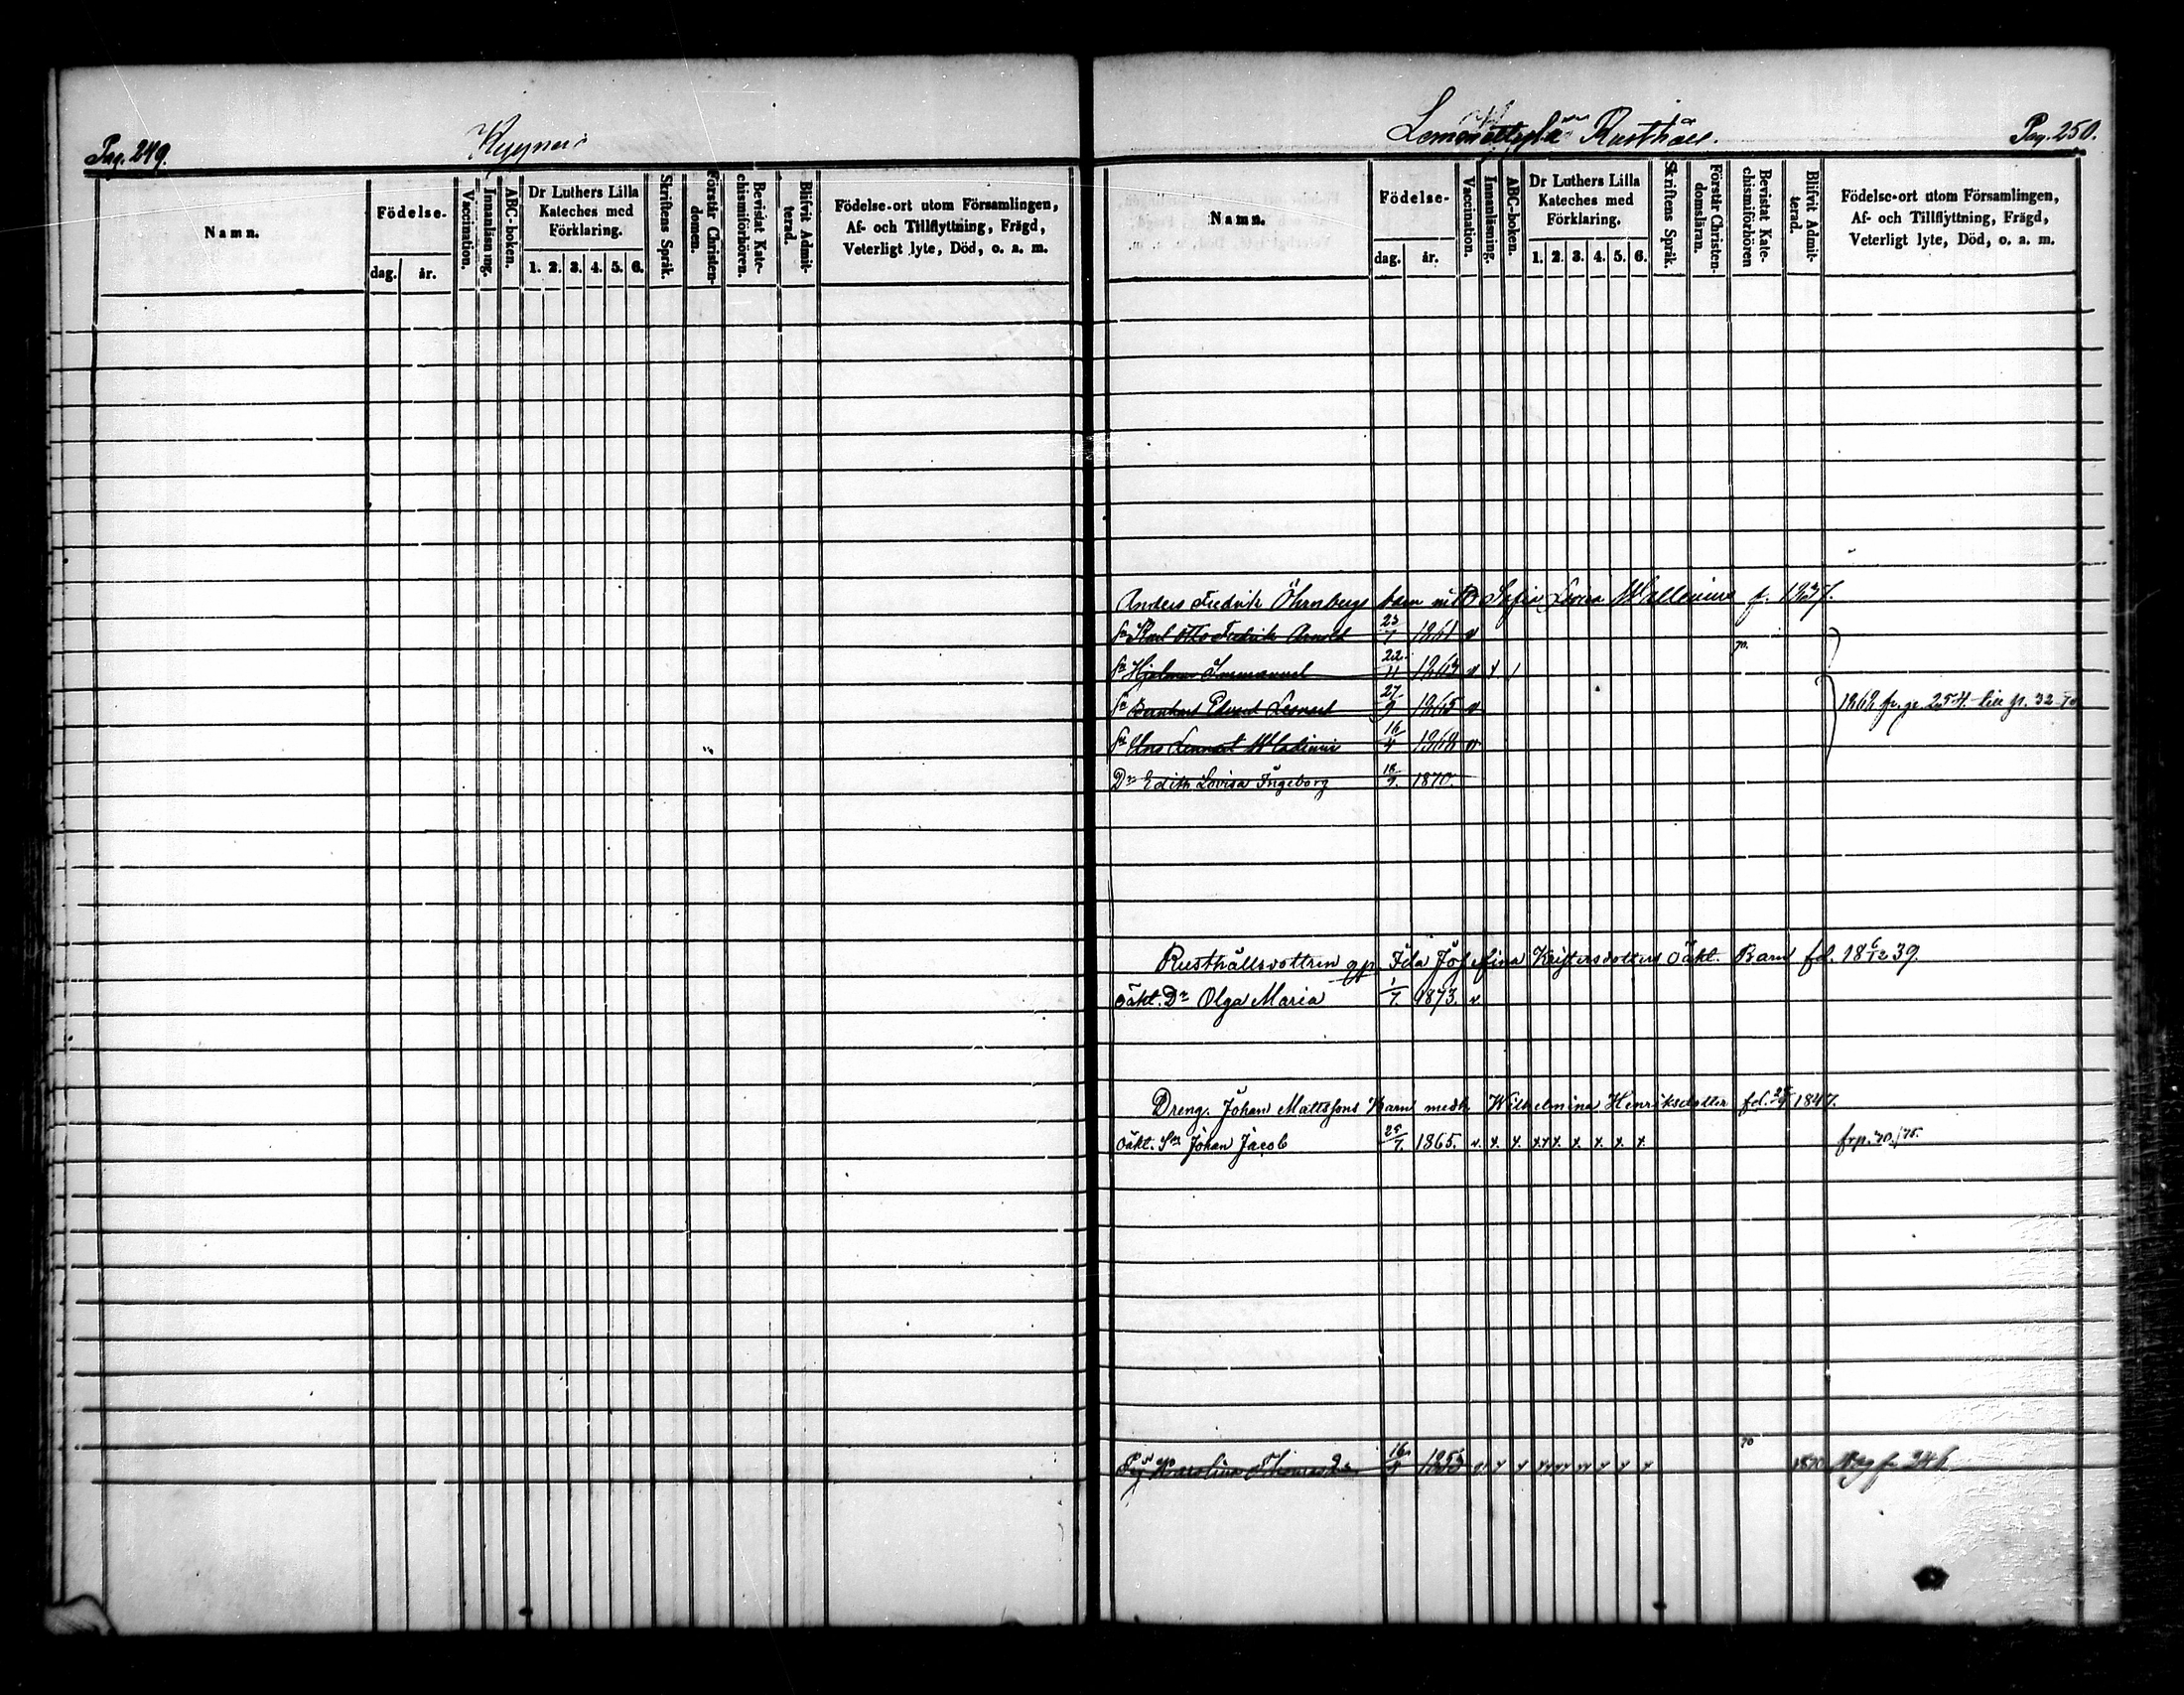 Pag. 249.
Namn.
Födelse.
dag.
år.
Vaccination.
Innanläsning.
ABC-boken.
Dr Luthers Lilla
Kateches med
Förklaring.
1. 2. 3. 4. 5. 6.
Skriftens Språk.
Förstår Christen-
domen.
Bevistat Kate-
chismiförhören.
Blifvit Admit-
terad.
Födelse-ort utom Församlingen,
Af- och Tillflyttning, Frägd,
Veterligt lyte, Död, o. a. m.
Rusthåll.
Pag. 250.
Namn.
Födelse-
dag.
år.
Vaccination.
Innanläsning.
ABC-boken.
Dr Luthers Lilla
Kateches med
Förklaring.
1. 2. 3. 4. 5. 6.
Skriftens Språk.
Förstår Christen-
domsläran.
Bevistat Kate-
chismiförhören
Blifvit Admit-
terad.
Födelse-ort utom Församlingen,
Af- och Tillflyttning, Frägd,
Veterligt lyte, Död, o. a. m.
Anders Fredrik Öhrnbergs barn m. Sofia Lovisa Wallenius f. 1837.
Sn Karl Otto Fredrik Arnold 23/7 1861 v
Sn Hjalmar Immanuel 22/11 1863 v
Sn Bernhard Edvard Leonard 27/9 1865 v
Sn Lennart Wladimir 16/4 1868 v
1862 fr. p. 254. till p. 32 70
Dr Edith Lovisa Ingeborg 18/9. 1870.
Rusthållsdottren gp. Ida Josefina Kristersdotters oäkt. Barn fd. 18 6/12 39.
oäkt. Dr Olga Maria 1/7. 1873. v
Dreng. Johan Mattssons Barn medh Wilhelmina Henriksdotter fd. 1847.
oäkt. Sn Johan Jacob 25/7. 1865. v. x. x. x x x. x. x. x. x. frp. 70./75.
Karolina Thomasd. 16 1853 70 1870 fr 246